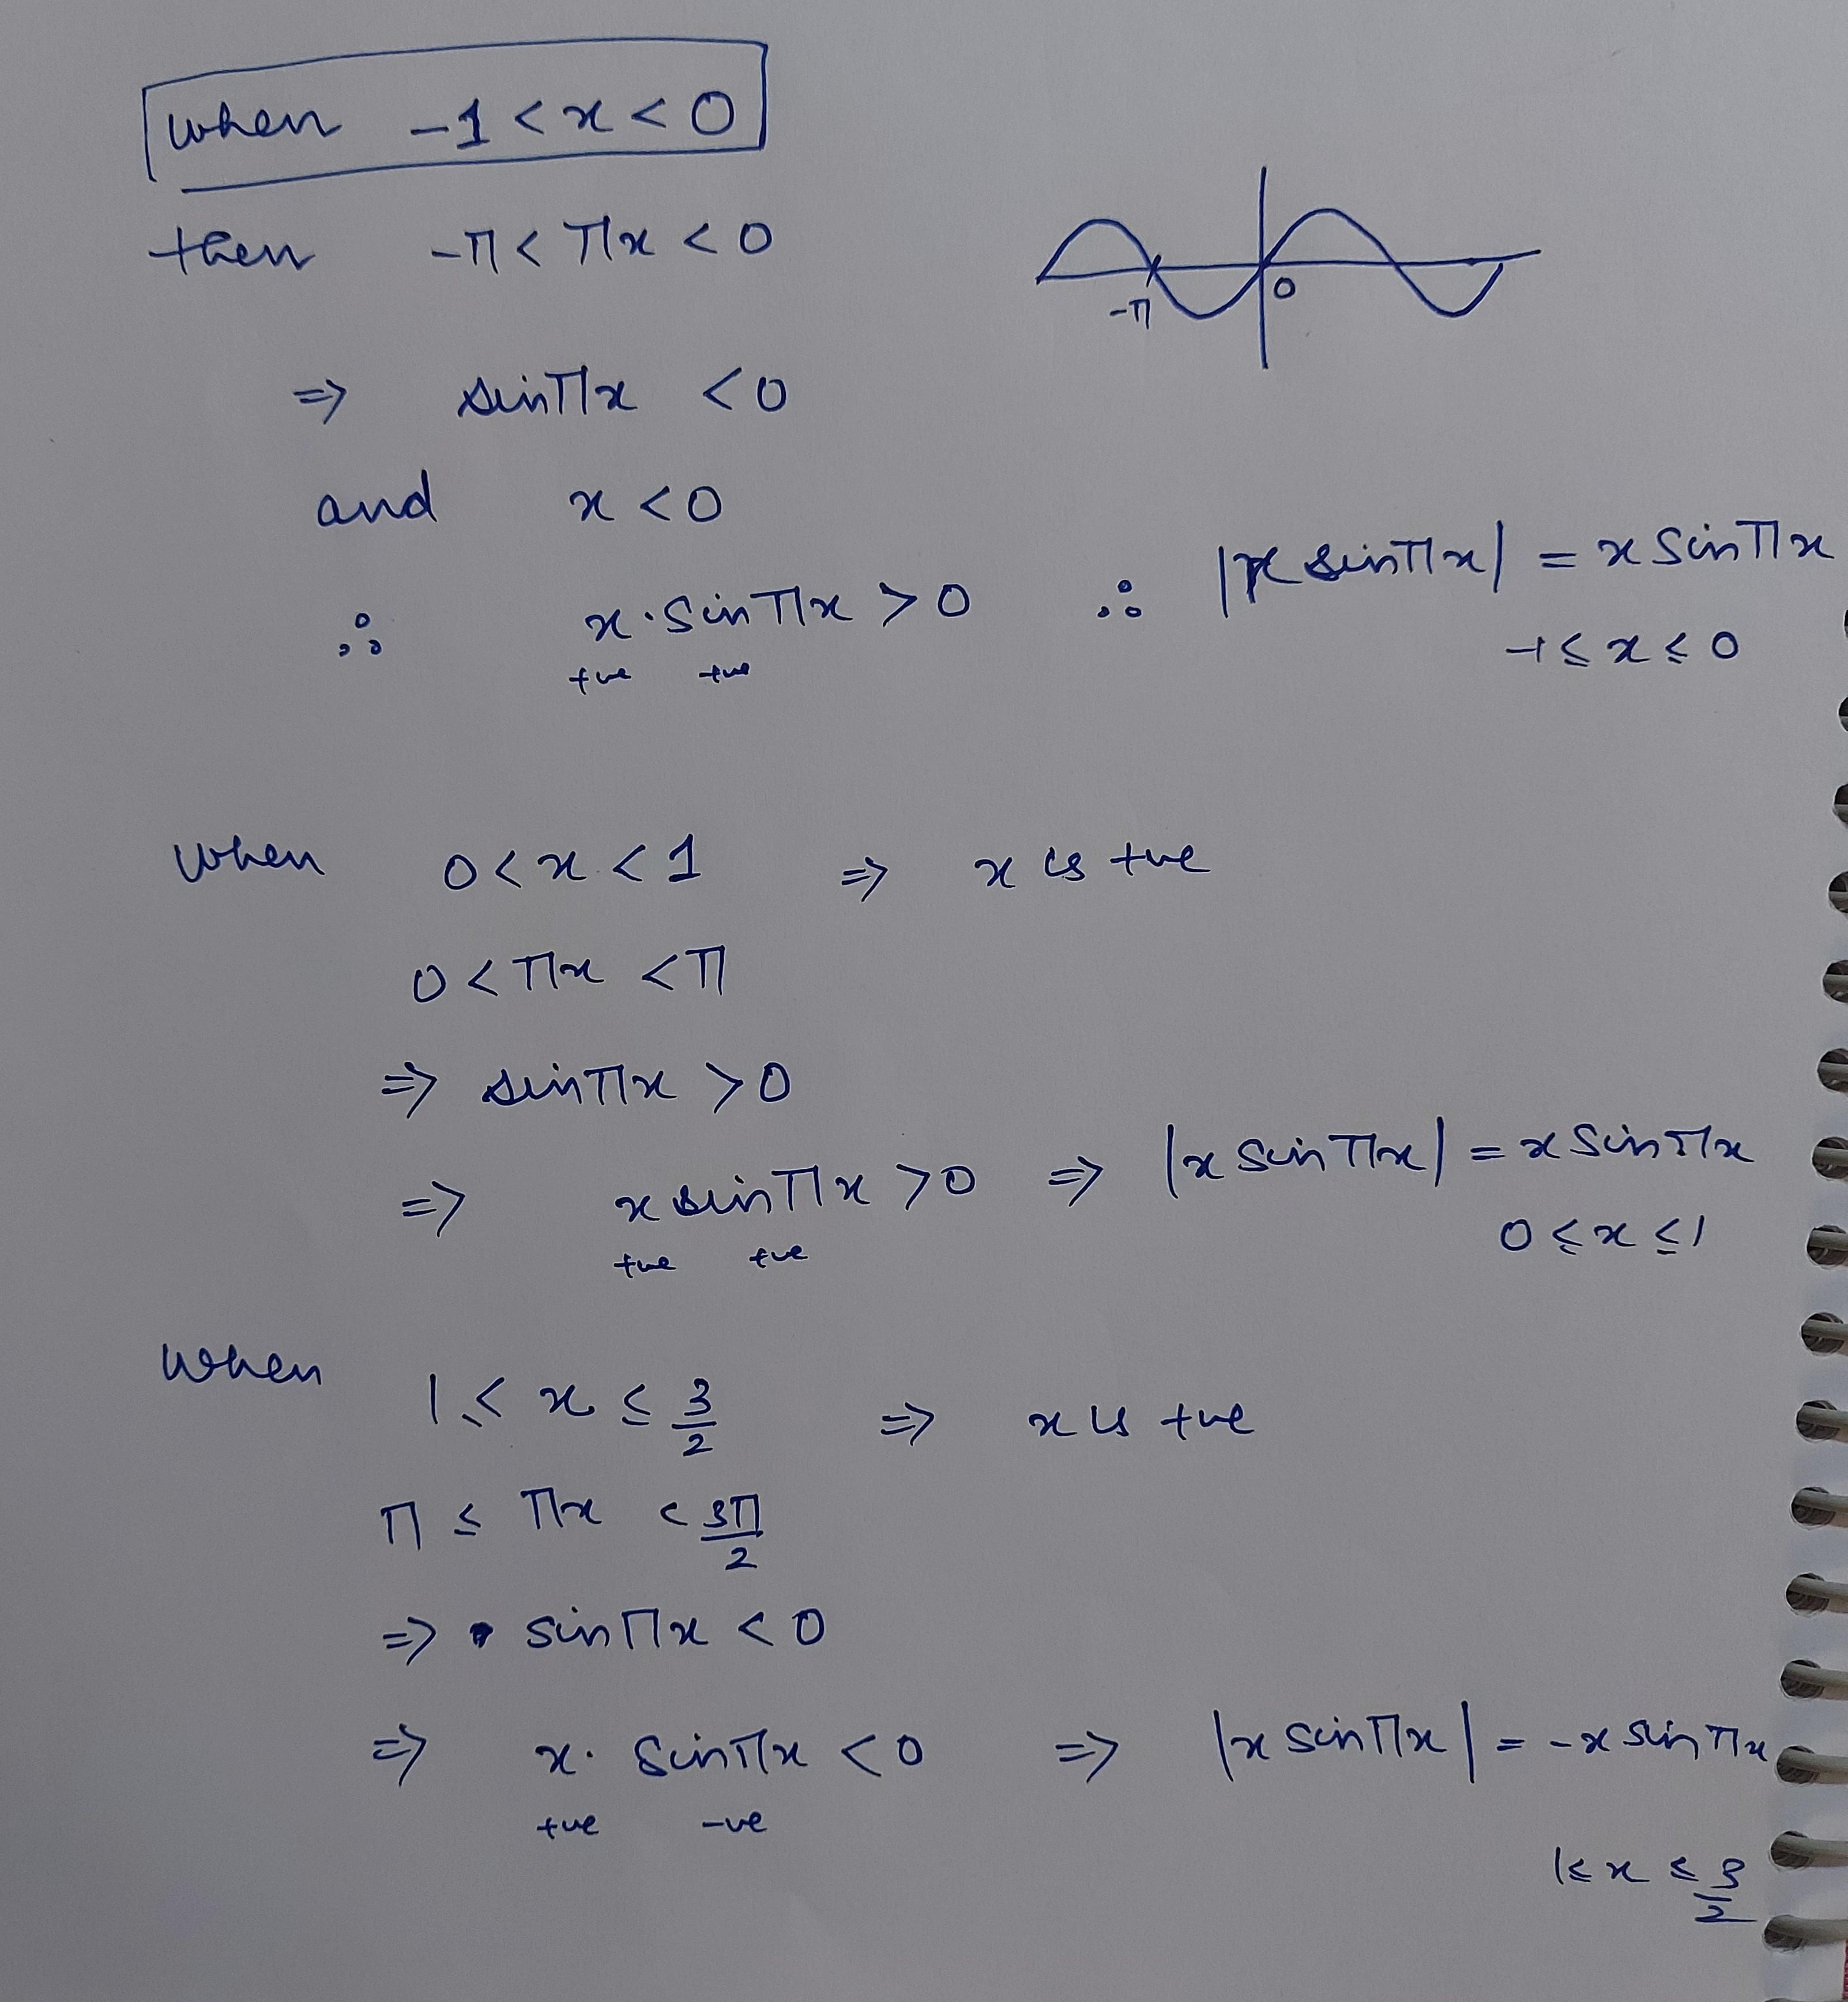 when -1 < x < 0
then -π < πx < 0
-π 0
⇒ sinπx < 0
and x < 0
∴ x·sinπx > 0 ∴ |x sinπx| = x sinπx
+ve +ve -1 ≤ x ≤ 0
when 0 < x < 1 ⇒ x is +ve
0 < πx < π
⇒ sinπx > 0
⇒ x sinπx > 0 ⇒ |x sinπx| = x sinπx
+ve +ve 0 ≤ x ≤ 1
when 1 ≤ x ≤ 3/2 ⇒ x is +ve
π ≤ πx < 3π/2
⇒ sinπx < 0
⇒ x· sinπx < 0 ⇒ |x sinπx| = -x sinπx
+ve -ve
1 ≤ x ≤ 3/2